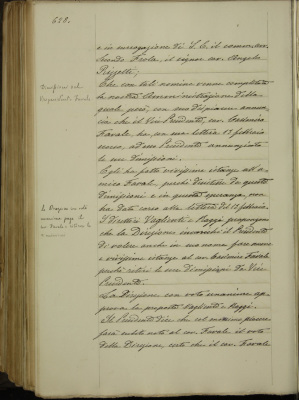 628.
e in surrogazione di S. E. il comm. avv.
Secondo Frola, il signor cav. Angelo
Rizzetti;
Che con tali nomine venne completata
la nostra Amministrazione della
quale però, con suo dispiacere annun-
cia che il Vice Presidente, cav. Cesonio
Favale, ha, con sua lettera 12 febbraio
scorso, ad esso Presidente annunziato
le sue dimissioni.
Egli ha fatto vivissime istanze all'a-
mico Favale, perchè desistesse da queste
dimissioni e in questa speranza, non
ha dato corso alla lettera di 12 febbraio.
I Direttori Voglienti e Maggi propongono
che la Direzione incarichi il Presidente
di volere anche in suo nome fare nuove
e vivissime istanze al cav. Favale
perchè ritiri le sue dimissioni da Vice
Presidente.
La Direzione con voto unanime ap-
prova la proposta Voglienti-Maggi.
Il Presidente dice che col massimo piacere
farà subito noto al cav. Favale il voto
della Direzione, certo che il cav. Favale
Dimissioni del
Vicepresidente Favale
La Direzione con voto
unanime prega il
cav. Favale a ritirare le